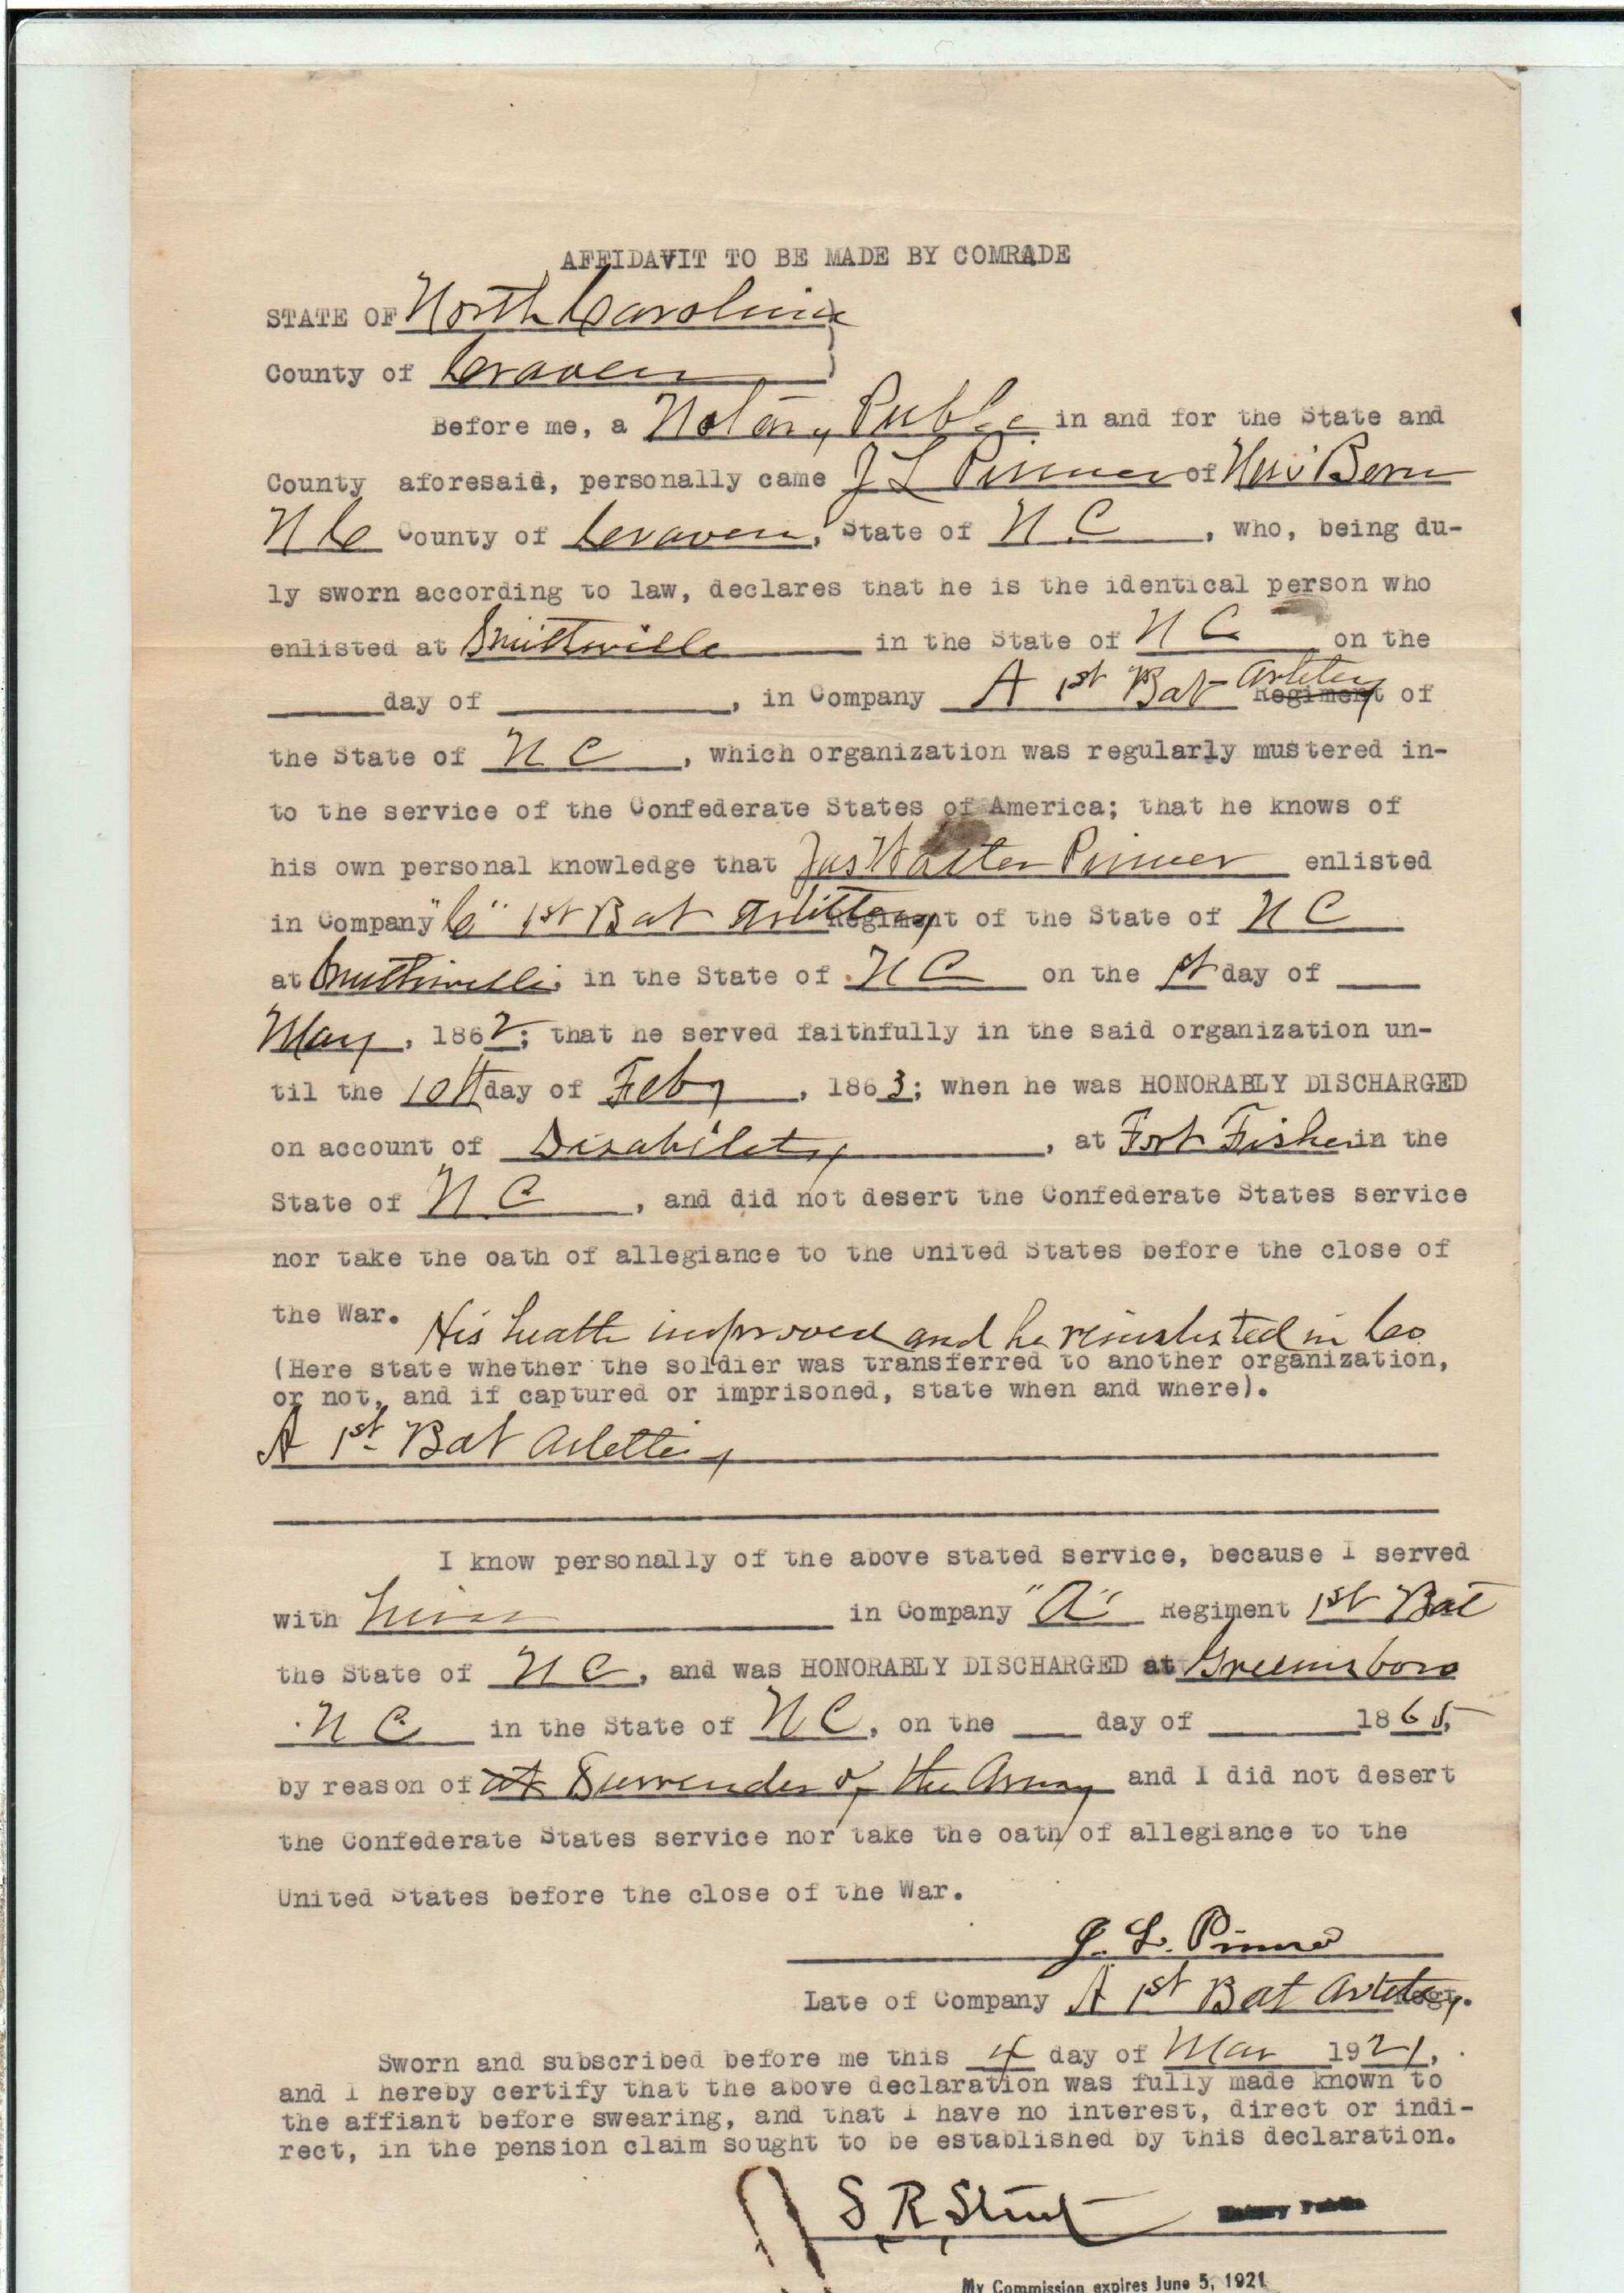 AFFIDAVIT TO BE MADE BY COMRADE
STATE OF North Carolina
County of Craven
Before me, a Notary Public in and for the State and
County aforesaid, personally came J L Pinner of New Bern
N C County of Craven, State of N C, who, being du-
ly sworn according to law, declares that he is the identical person who
enlisted at Smithville in the State of N C on the
day of , in Company A 1st Bat Artilery Regiment of
the State of N C, which organization was regularly mustered in-
to the service of the Confederate States of America; that he knows of
his own personal knowledge that Jas Walter Pinner enlisted
in Company "C" 1st Bat Artillery Regiment of the State of N C
at Smithville, in the State of N C on the 1st day of
May, 1862; that he served faithfully in the said organization un-
til the 10th day of Feby, 1863; when he was HONORABLY DISCHARGED
on account of Disability, at Fort Fisher in the
State of N C, and did not desert the Confederate States service
nor take the oath of allegiance to the United States before the close of
the War. His health improved and he reinlisted in Co
(Here state whether the soldier was transferred to another organization,
or not, and if captured or imprisoned, state when and where).
A 1st Bat Artillery
I know personally of the above stated service, because I served
with him in Company "A" Regiment 1st Bat
the State of N C, and was HONORABLY DISCHARGED at Greensboro
N C in the State of N C, on the day of 1865,
by reason of at Surrender of the Army and I did not desert
the Confederate States service nor take the oath of allegiance to the
United States before the close of the War.
J. L. Pinner
Late of Company A 1st Bat Artilery Regt.
Sworn and subscribed before me this 4 day of Mar 1921,
and I hereby certify that the above declaration was fully made known to
the affiant before swearing, and that I have no interest, direct or indi-
rect, in the pension claim sought to be established by this declaration.
S R Street Notary Public
My Commission expires June 5, 1921